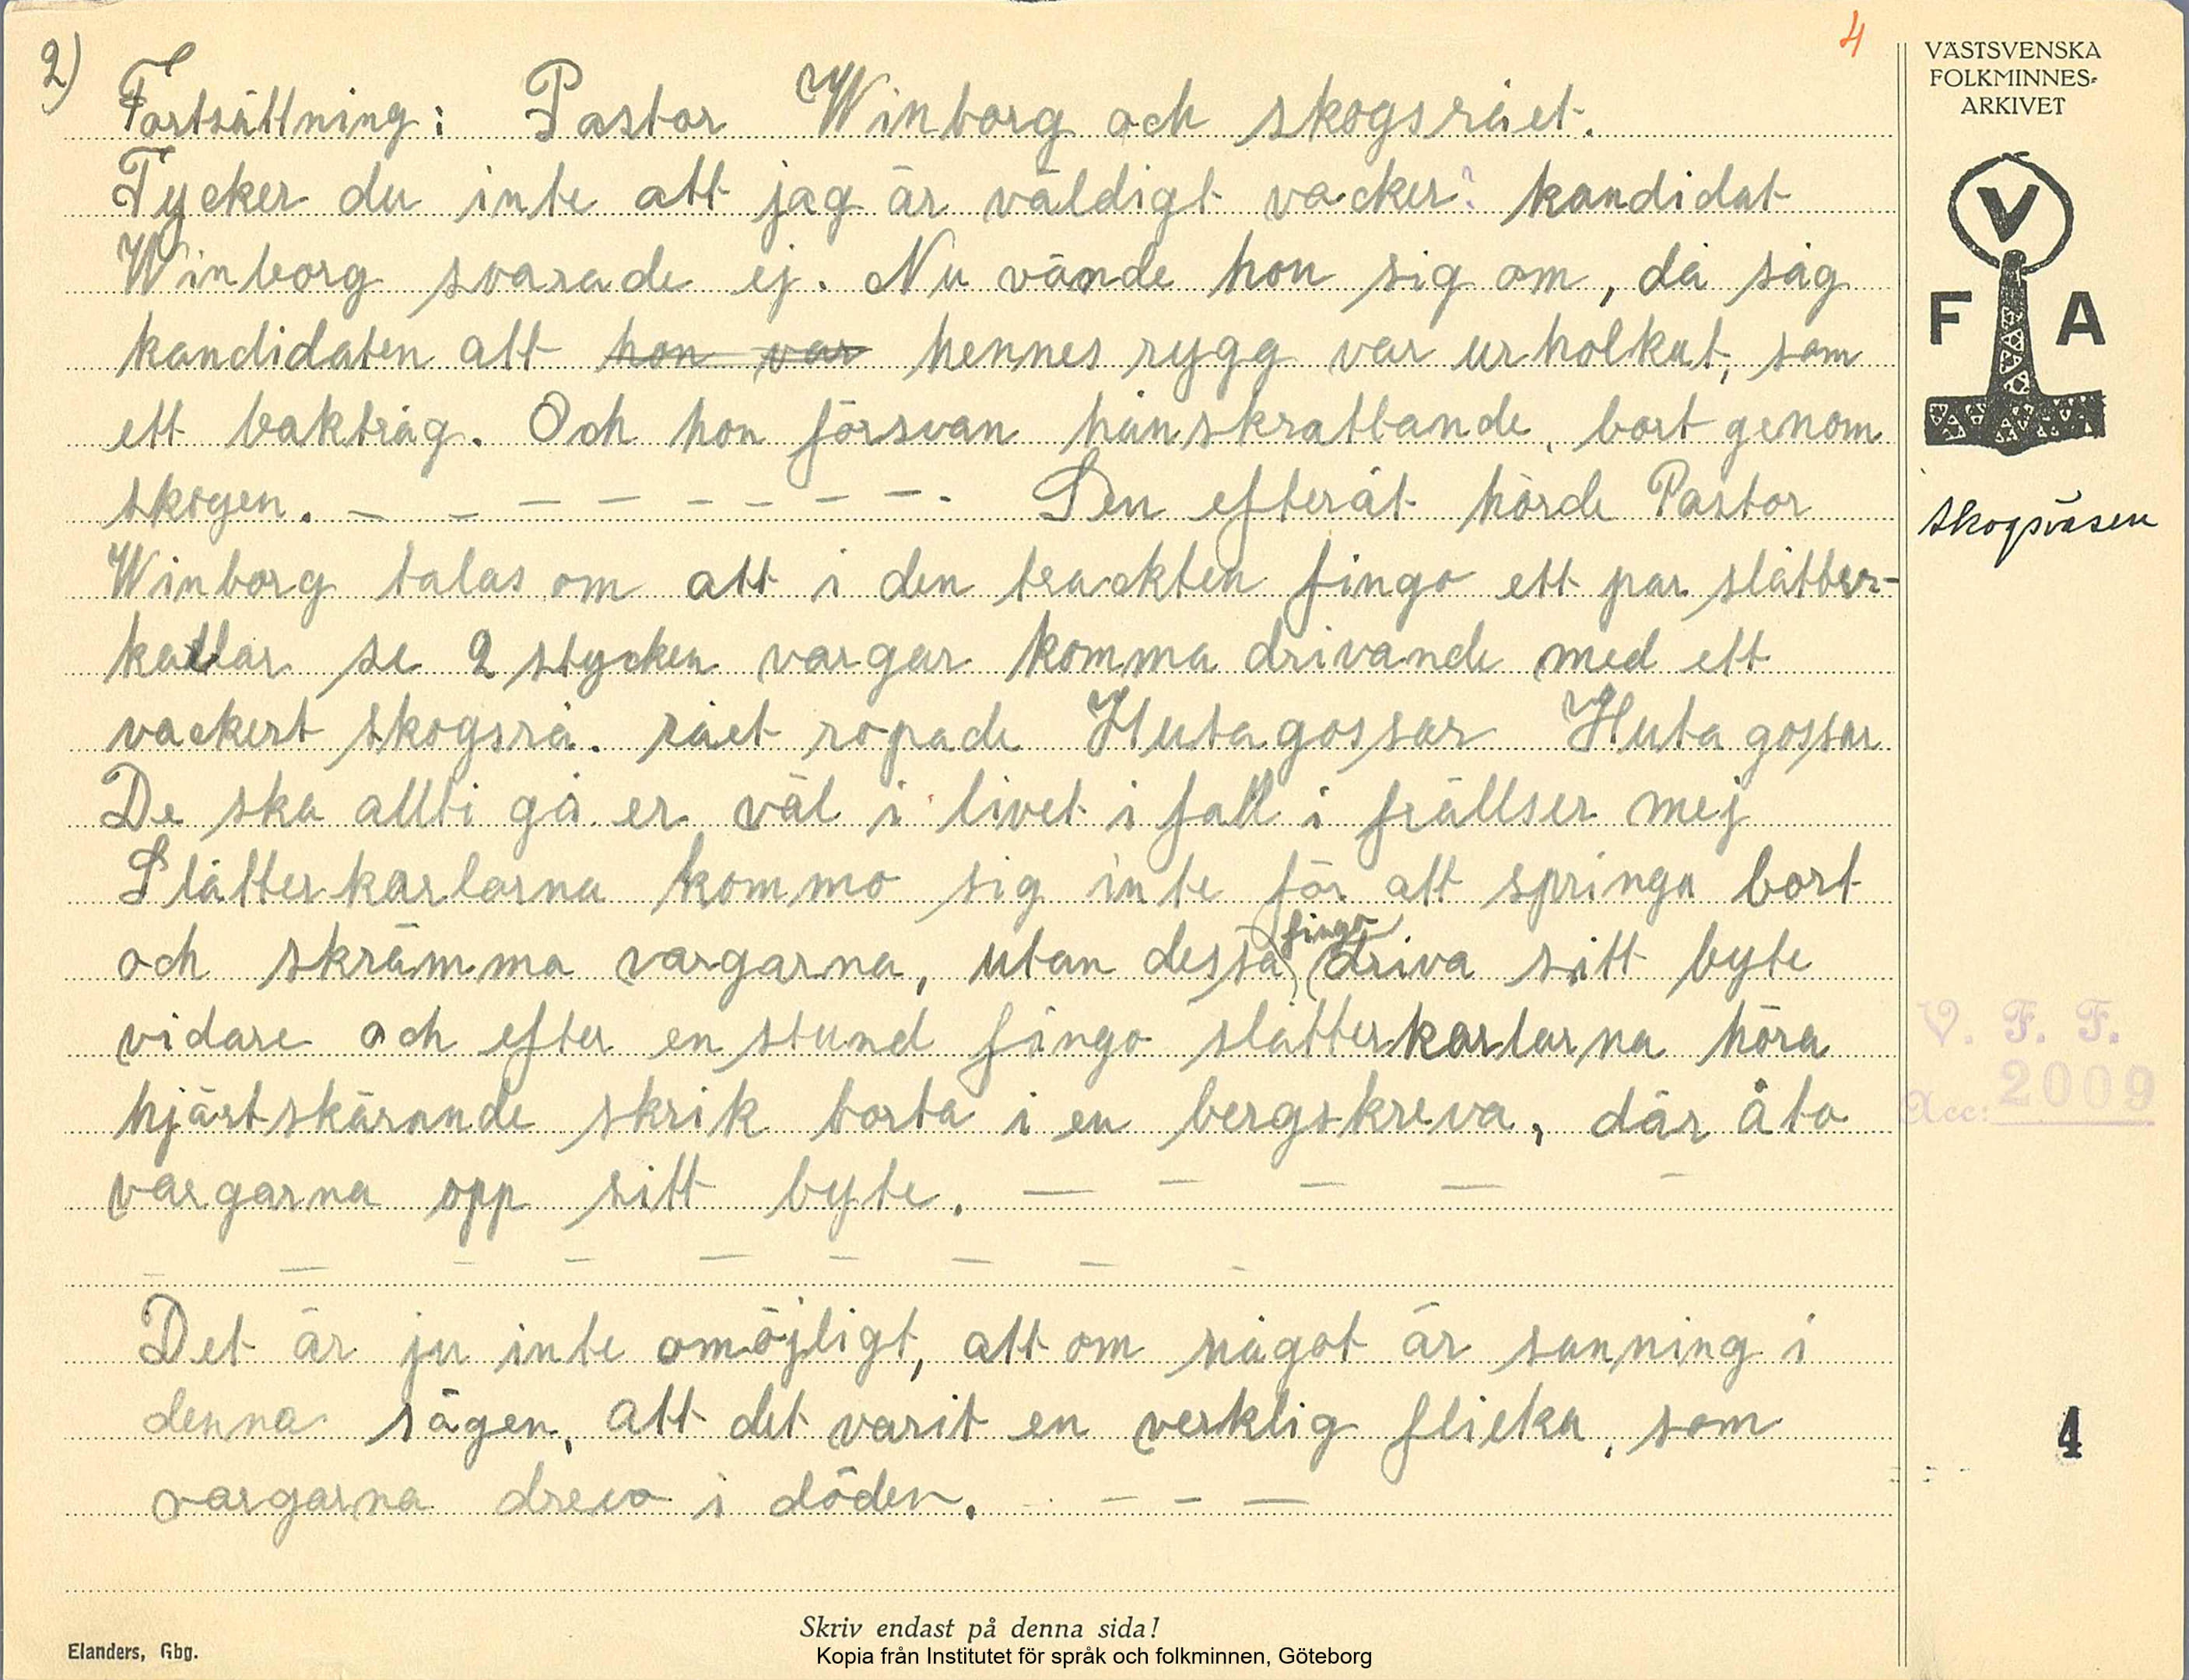 2)
4
Fortsättning: Pastor Winborg och skogsrået.
Tycker du inte att jag är väldigt vacker? kandidat
Winborg svarade ej. Nu vände hon sig om, då såg
kandidaten att hon var hennes rygg var urholkat, som
ett baktråg. Och hon försvan hånskrattande, bort genom
skogen. – – – – – – – –. Den efteråt hörde Pastor
Winborg talas om att i den trackten fingo ett par slåtter-
karlar se 2 stycken vargar komma drivande med ett
vackert skogsrå. rået ropade Hutagossar Huta gossar
De ska allti gå er väl i livet i fall i frällser mej
Slåtterkarlarna kommo sig inte för att springa bort
och skrämma vargarna, utan dessa fingo driva sitt byte
vidare och efter en stund fingo slåtterkarlarna höra
hjärtskärande skrik borta i en bergskreva, där åto
vargarna opp sitt byte. – – – – –
– – – – – – – – –
Det är ju inte omöjligt, att om något är sanning i
denna sägen, att det varit en verklig flicka, som
vargarna drevo i döden. – – – –
VÄSTSVENSKA
FOLKMINNES-
ARKIVET
V
F A
skogsväsen
V. F. F.
Acc: 2009
4
Skriv endast på denna sida!
Elanders, Gbg.
Kopia från Institutet för språk och folkminnen, Göteborg